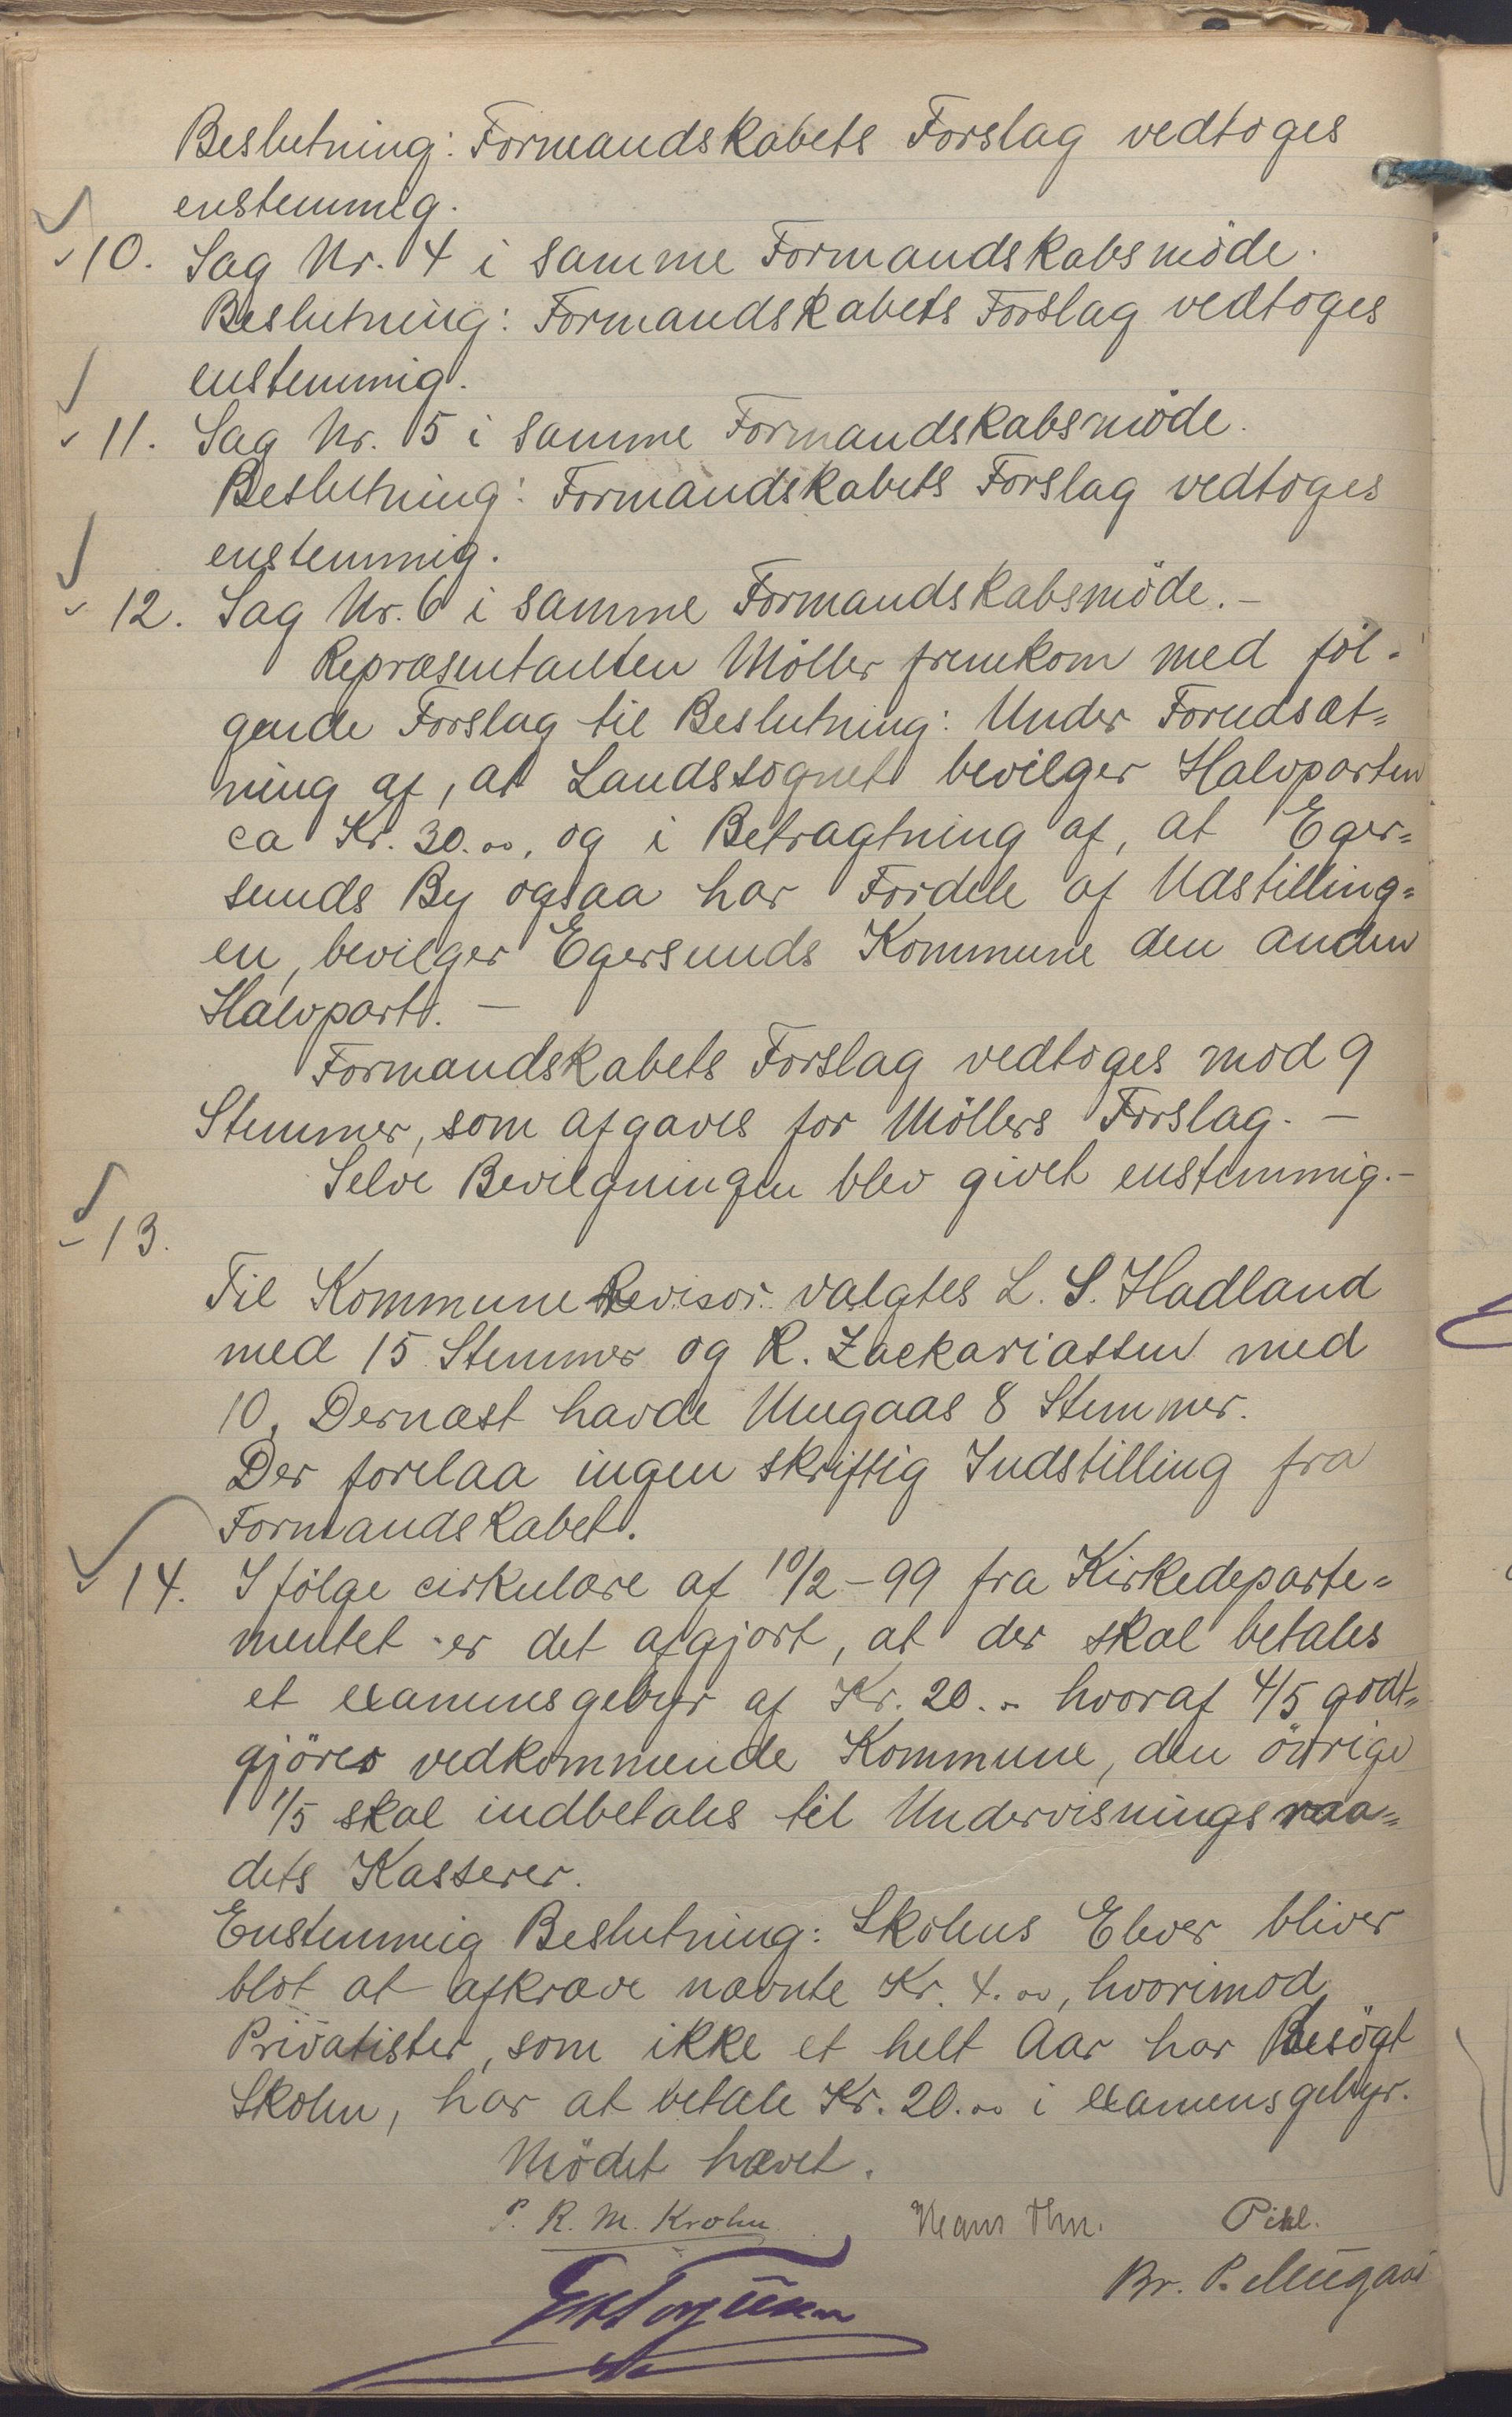 Beslutning: Formandskabets Forslag vedtoges
enstemmig.
10. Sag Nr. 4 i samme Formandskabsmöde.
Beslutning: Formandskabets Forslag vedtoges
enstemmig.
11. Sag Nr. 5 i samme Formandskabsmöde.
Beslutning: Formandskabets Forslag vedtoges
enstemmig.
12. Sag Nr. 6 i samme Formandskabsmöde. -
Repræsentanten Möller fremkom med föl-
gende Forslag til Beslutning: Under Forudsæt=
ning af, at Landssognet bevilger Halvparten
ca Kr. 30.00, og i Betragtning af, at Eger=
sunds By ogsaa har Fordele af Udstilling=
en, bevilger Egersunds Kommune den anden
Halvpart. -
Formandskabets Forslag vedtoges mod 9
Stemmer, som afgaves for Möllers Forslag. -
Selve Bevilgningen blev givet enstemmig. -
13.
Til Kommune Revisor valgtes L. S. Hadland
med 15 Stemmer og R. Zackariassen med
10, Dernæst havde Mugaas 8 Stemmer.
Der forelaa ingen skriftig Indstilling fra
Formandskabet.
14. I fölge cirkulære af 10/2-99 fra Kirkedeparte=
mentet er det afgjort, at der skal betales
et examensgebyr af Kr. 20.- hvoraf 4/5 godt=
gjöres vedkommende Kommune, den övrige
1/5 skal indbetales til Undervisningsraa=
dets Kasserer.
Enstemmig Beslutning: Skolens Elever bliver
blot at afkræve nævnte Kr. 4.00, hvorimod
Privatister, som ikke et helt Aar har Besögt
Skolen, har at betale Kr. 20.00 i examensgebyr.
Mödet hævet.
P. R. M. Krohn Pihl.
Br. P. Mugaas